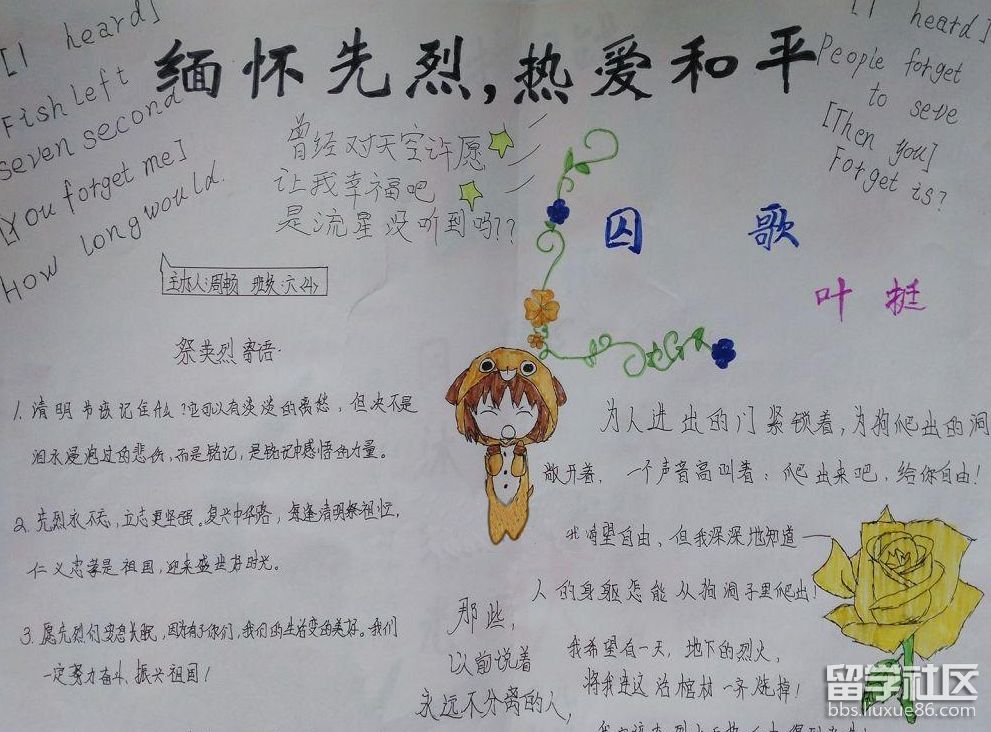 缅怀先烈,热爱和平
[I heard]
Fish Left
seven second
[You forget me]
How long would.
[I heard]
People forget
to seve
[Then you]
Forget is?
曾经对天空许愿
让我幸福吧
是流星没听到吗??
主办人:周畅 班级:六<4>
囚 歌
叶 挺
祭英烈寄语.
1. 清明节该记住什么?它可以有淡淡的离愁,但决不是
泪水漫泡过的悲伤,而是铭记,是铭记中感悟的力量。
2. 先烈永不忘,立志更坚强。复兴中华路,每逢清明祭祖忙,
仁义忠孝是祖国,迎来盛世好时光。
3. 愿先烈们安息长眠,因为有了你们,我们的生活变的美好。我们
一定努力奋斗、振兴祖国!
为人进出的门紧锁着,为狗爬出的洞
敞开着,一个声音高叫着:爬出来吧,给你自由!
我渴望自由,但我深深地知道——
人的身躯怎能从狗洞子里爬出!
我希望有一天,地下的烈火,
将我连这活棺材一齐烧掉!
那些,
以前说着
永远不分离的人,
留学社区
bbs.liuxue86.com